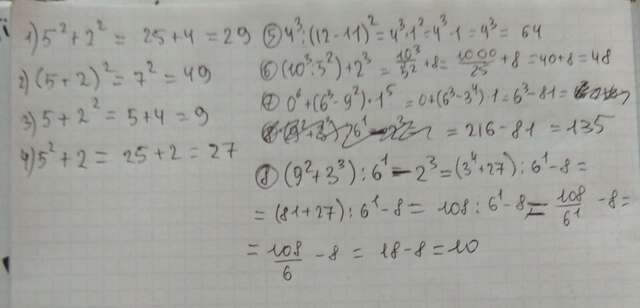 1) 5² + 2² = 25 + 4 = 29
2) (5 + 2)² = 7² = 49
3) 5 + 2² = 5 + 4 = 9
4) 5² + 2 = 25 + 2 = 27
5 4³ : (12 - 11)² = 4³ · 1² = 4³ · 1 = 4³ = 64
6 (10³ : 5²) + 2³ = 10³/5² + 8 = 1000/25 + 8 = 40 + 8 = 48
7 0⁶ + (6³ - 9²) · 1⁵ = 0 + (6³ - 3⁴) · 1 = 6³ - 81 =
= 216 - 81 = 135
8 (9² + 3³) : 6¹ - 2³ = (3⁴ + 27) : 6¹ - 8 =
= (81 + 27) : 6¹ - 8 = 108 : 6¹ - 8 = 108/6¹ - 8 =
= 108/6 - 8 = 18 - 8 = 10